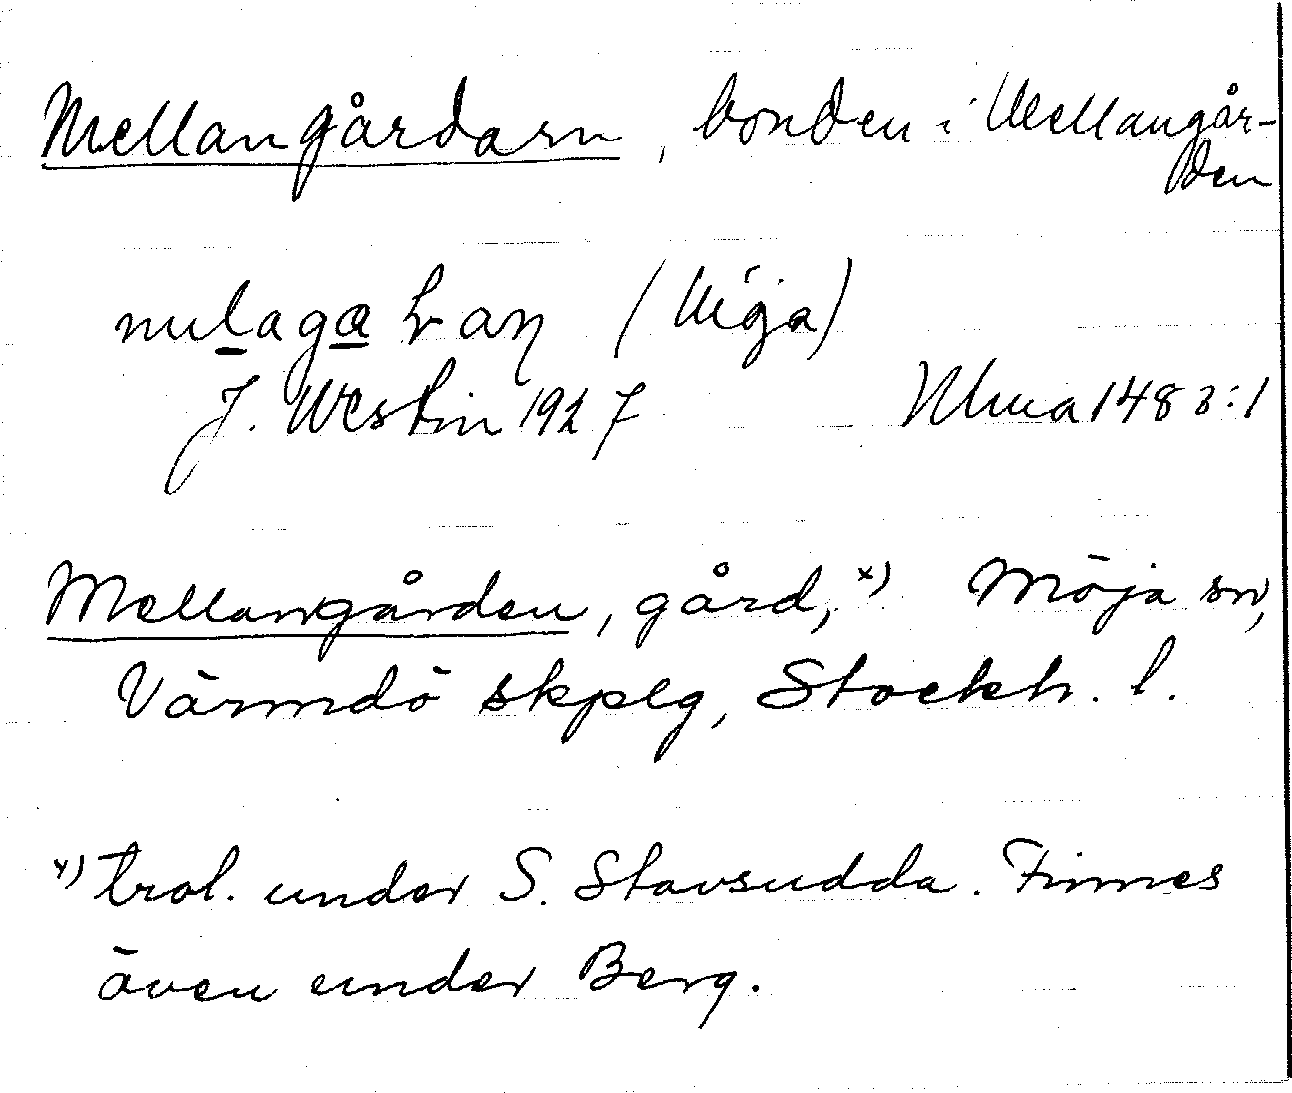 Mellangårdarn, bonden i Mellangår-
den
(Möja)
J. Westin 1927 Ulma 148 3:1
Mellangården, gård, x) Möja sn,
Värmdö skplg, Stockh. l.
x) trol. under S. Stavsudda. Finnes
även under Berg.